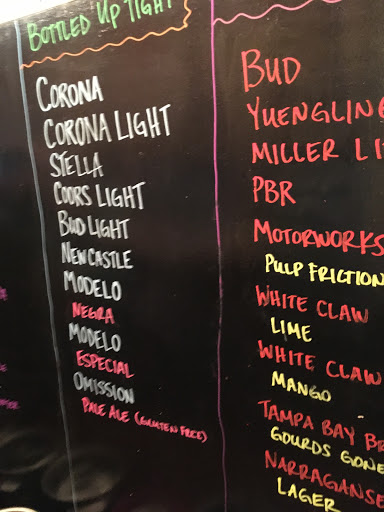 BOTTLED UP TIGHT
CORONA
CORONA LIGHT
STELLA
COORS LIGHT
BUD LIGHT
NEWCASTLE
MODELO
NEGRA
MODELO
ESPECIAL
OMISSION
PALE ALE (GLUTEN FREE)
BUD
YUENGLING
MILLER LI
PBR
MOTORWORKS
PULP FRICTION
WHITE CLAW
LIME
WHITE CLAW
MANGO
TAMPA BAY BR
GOURDS GONE
NARRAGANSE
LAGER